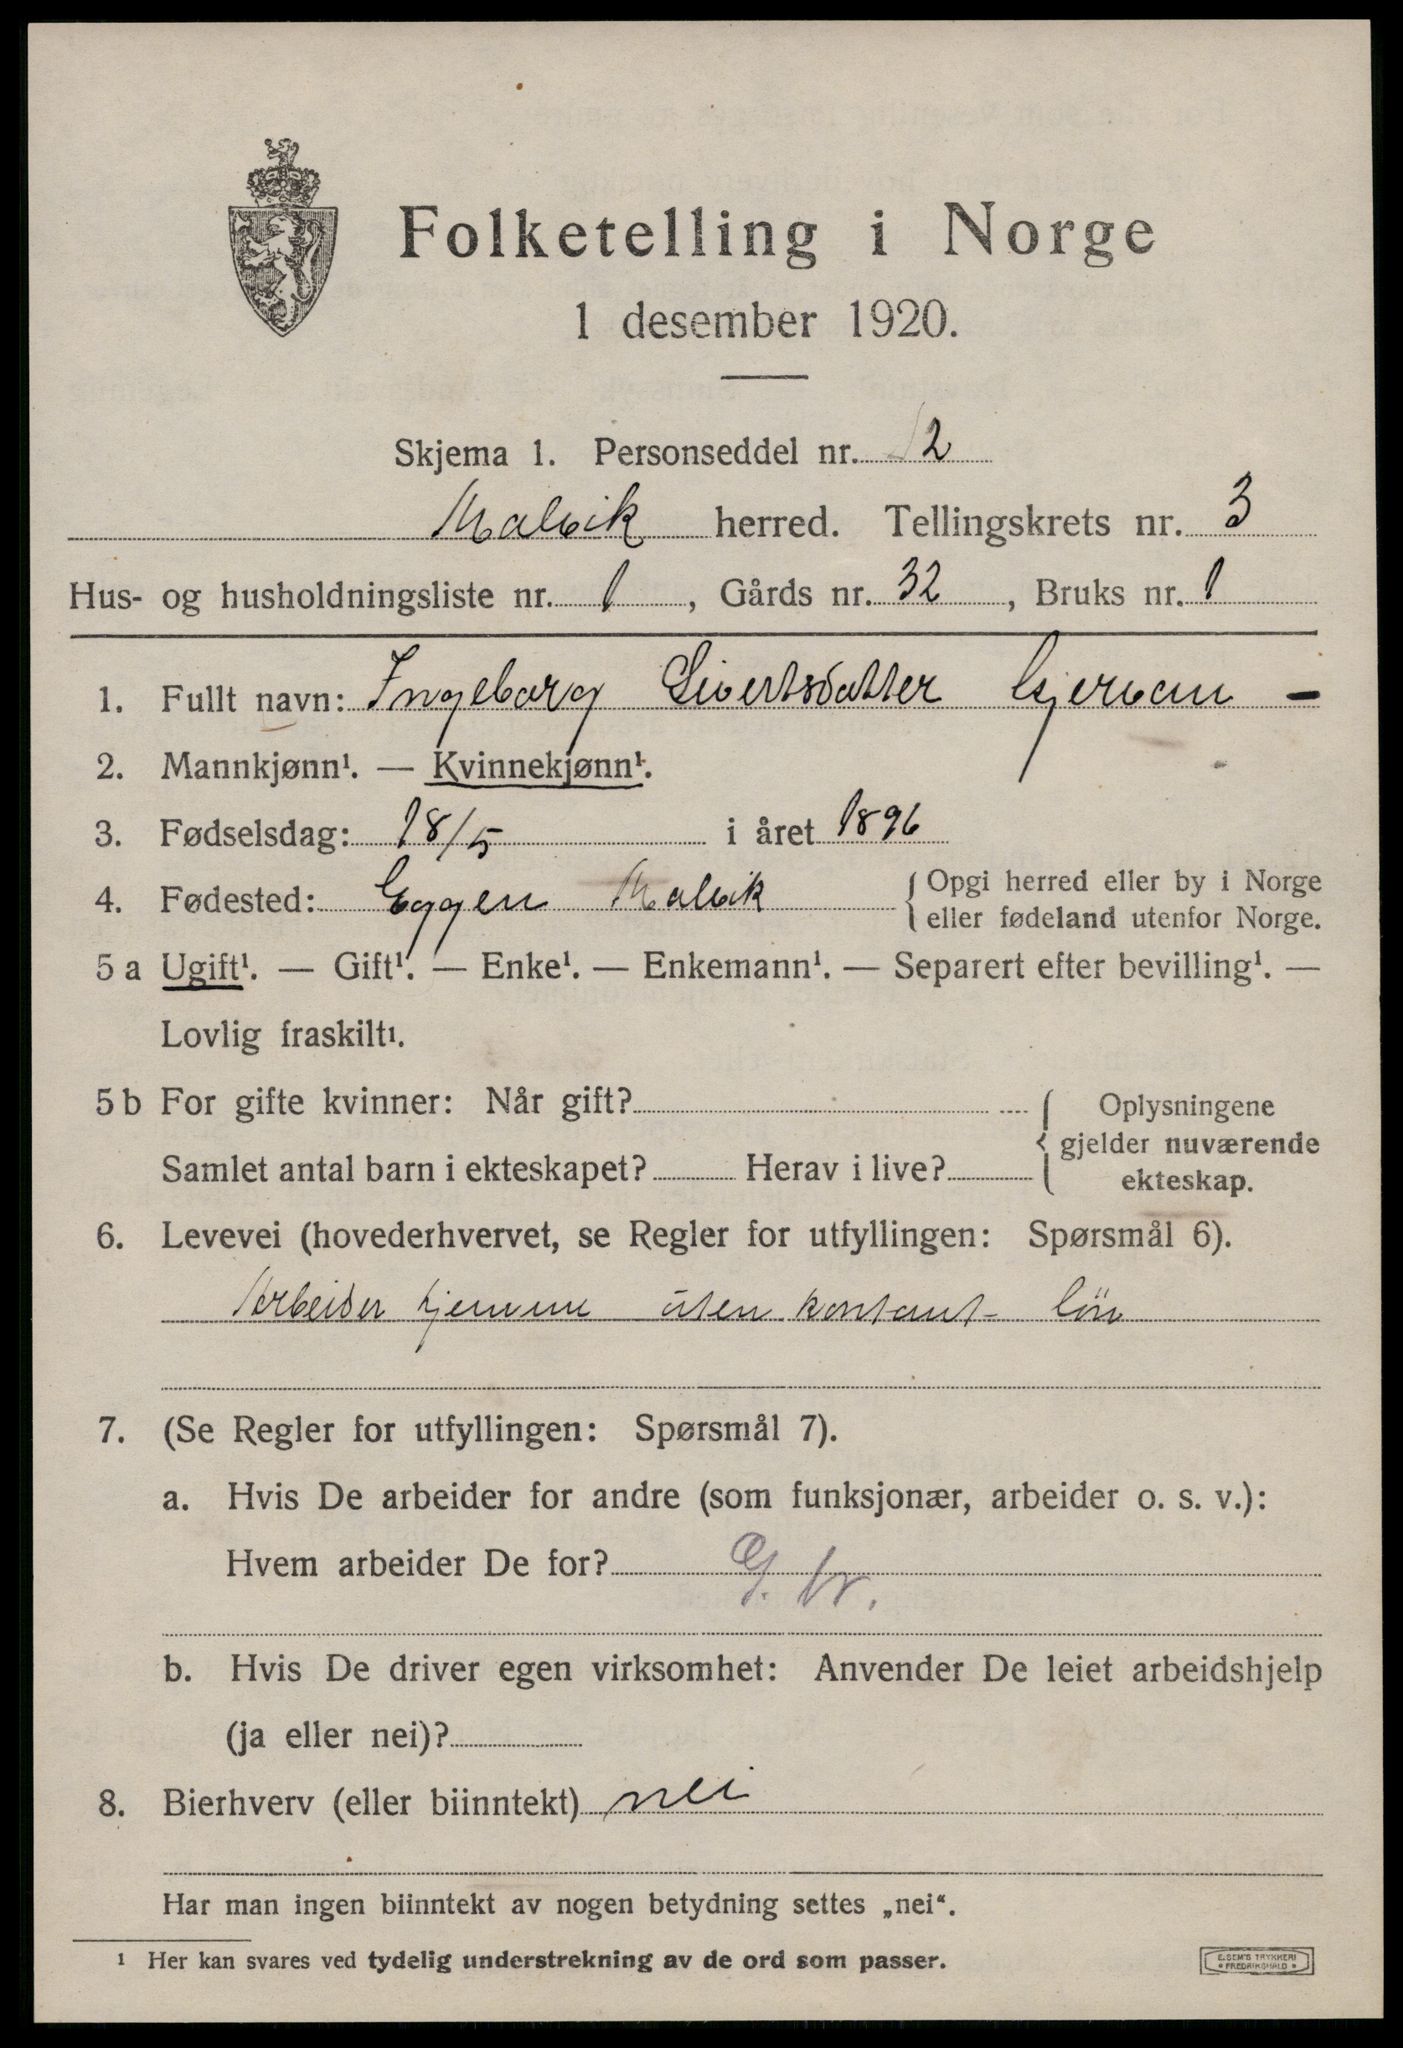 Folketelling i Norge
1 desember 1920.
Skjema 1. Personseddel nr. 12
Malvik herred. Tellingskrets nr. 3
Hus- og husholdningsliste nr. 1, Gårds nr. 32, Bruks nr. 1
1. Fullt navn: Ingeborg Sivertsdatter Gjervan –
2. Mannkjønn¹. — Kvinnekjønn¹.
3. Fødselsdag: 18/5 i året 1896
4. Fødested: Eggen Malvik { Opgi herred eller by i Norge
eller fødeland utenfor Norge.
5 a Ugift¹. — Gift¹. — Enke¹. — Enkemann¹. — Separert efter bevilling¹. —
Lovlig fraskilt¹.
5 b For gifte kvinner: Når gift? { Oplysningene
gjelder nuværende
Samlet antal barn i ekteskapet? Herav i live? ekteskap.
6. Levevei (hovederhvervet, se Regler for utfyllingen: Spørsmål 6).
Arbeider hjemme uten kontant løn
7. (Se Regler for utfyllingen: Spørsmål 7).
a. Hvis De arbeider for andre (som funksjonær, arbeider o. s. v.):
Hvem arbeider De for?
b. Hvis De driver egen virksomhet: Anvender De leiet arbeidshjelp
(ja eller nei)?
8. Bierhverv (eller biinntekt) nei
Har man ingen biinntekt av nogen betydning settes „nei“.
¹ Her kan svares ved tydelig understrekning av de ord som passer.
E. SEM'S TRYKKERI
• FREDRIKSHALD •